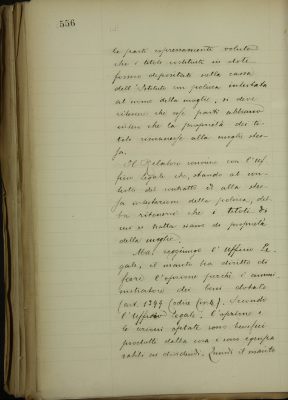 556
le parti espressamente voluto
che i titoli costituiti in dote
fossero depositati nella cassa
dell'Istituto in polizza intestata
al nome della moglie, si deve
ritenere che esse parti abbiano
inteso che la proprietà dei ti-
toli rimanesse alla moglie stes-
sa.
Il Relatore conviene con l'Uf-
ficio legale che, stando al con-
testo del contratto ed alla stes-
sa intestazione della polizza, deb-
ba ritenersi che i titoli di
cui si tratta siano di proprietà
della moglie.
Ma, soggiunge l'Ufficio Le-
gale, il marito ha diritto di
fare l'optio perchè è ammi-
nistratore dei beni dotali
(art. 1399 Codice Civile). Secondo
l'Ufficio legale, l'optio e
le azioni optate sono benefici
prodotti dalla cosa e sono equipa-
rabili ai dividendi. Quindi il marito